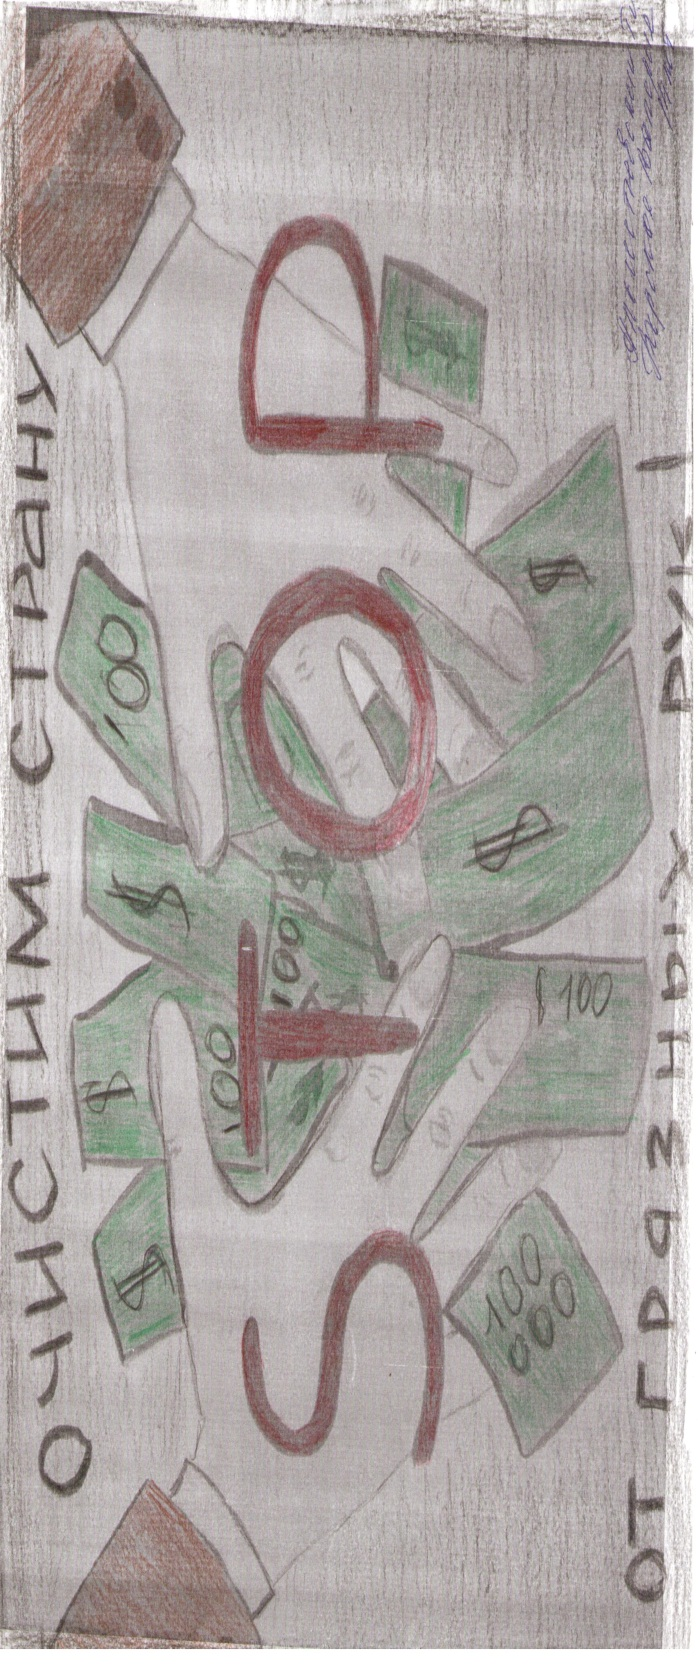 ОЧИСТИМ СТРАНУ
$
$
$
100
100
100
$
STOP
$
100
000
$100
$
$
ОТ ГРЯЗНЫХ РУК!